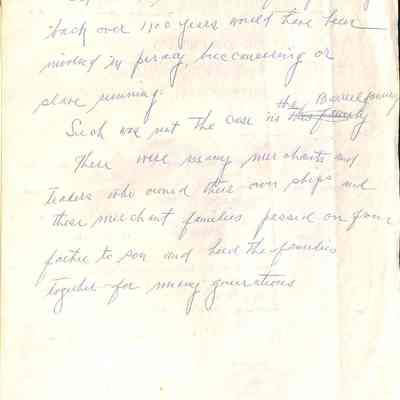 back over 1500 years would have been
involved in piracy, buccaneering or
slave running.
the Barrel family
Such was not the case in this family
There were many merchants and
traders who owned their own ships and
these merchant families passed on from
father to son and held the families
together for many generations